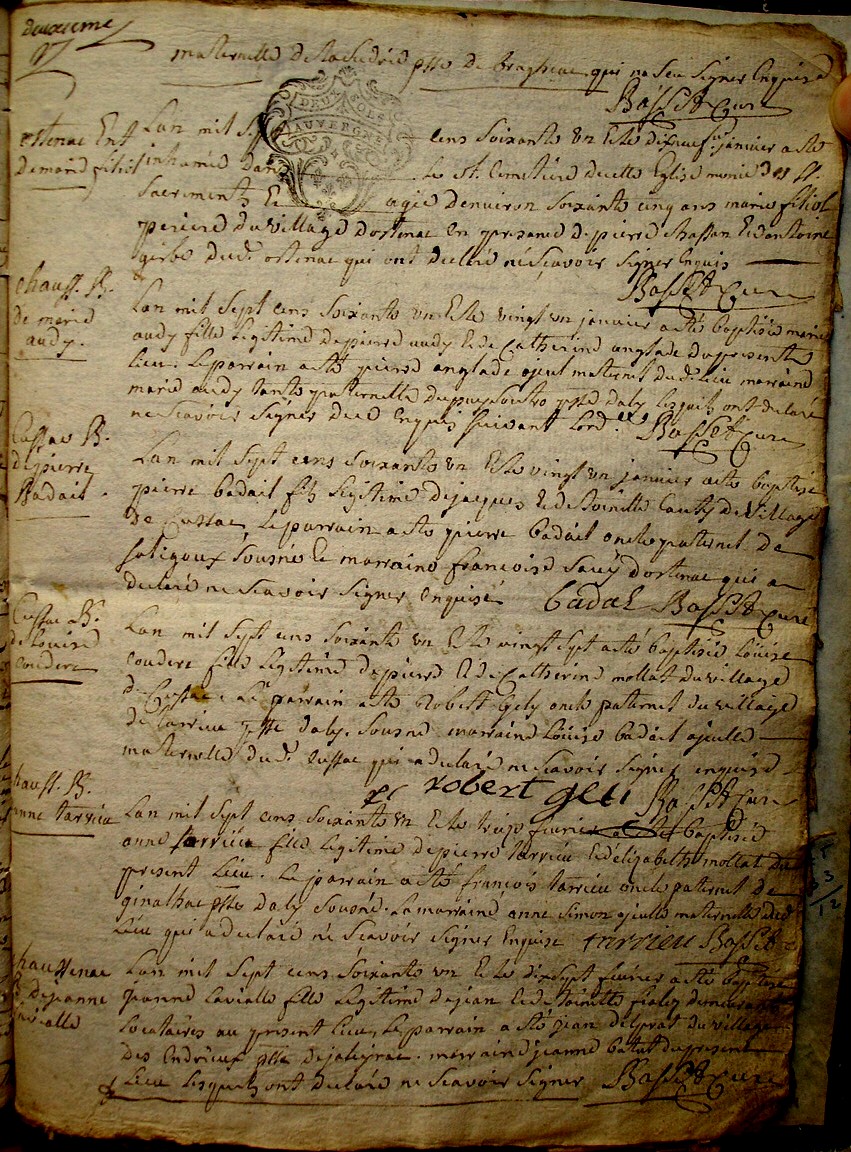 deuxieme
maternelle de la Sedoie psse de Braghac qui na Seu Signer Enquise
Basset Curé
DEUX SOLS
AUVERGNE
ortenac Ent
de marie filiol
Lan mil Sept cens Soixante un Et le dixneuf janvier a ete
inhumée dans le st. Cimetiere de cette Eglise munie des SS.
Sacrements Et agée denviron Soixante cinq ans marie filiol
du village dortenac En presance de pierre Bassan Et dantoine
girbe dud. ortenac qui ont declaré ne Scavoir Signer Enquis
Basset Curé
chauss. B.
de marie
audy.
Lan mil Sept cens Soixante un Et le vingt un janvier a été baptisée marie
audy fille Legitime de pierre audy Et de Catherine anglade du present
Lieu. Le parrain a eté pierre anglade ayeul maternel dud. Lieu marraine
marie audy tante paternelle psse daly Lesquels ont declaré
ne Scavoir Signer de ce Enquis Suivant Lord.ce Basset Curé
Cussac B.
de pierre
Badait.
Lan mil Sept cens Soixante un Et le vingt un janvier a ete baptisé
pierre badait fils Legitime de jacques Et de toinette du village
de Cussac, Le parrain a eté pierre badait oncle paternel de
Soligoux Sousné Et marraine francoise dortenac qui a
declaré ne Scavoir Signer Enquise badal Basset Curé
Cussac B.
de Louise
couderc
Lan mil Sept cens Soixante un Et le vingt Sept a été baptisée Loüise
couderc fille Legitime de pierre Et de Catherine mollat du village
de Cussac, Le parrain a eté Robert Gely oncle paternel du village
de tarrieu psse daly. Sousné marraine Loüise badait ayeulle
maternelle dud. Cussac qui a declaré ne Scavoir Signer enquise
robert geli Basset Curé
chauss. B.
anne tarrieu
Lan mil Sept cens Soixante un Et le treize fevrier a ete baptisée
anne tarrieu fille Legitime de pierre tarrieu Et délizabeth mollat du
present Lieu. Le parrain a eté françois tarrieu oncle paternel de
ginalhac psse daly Sousné. La marraine anne Simon ayeulle maternelle dud.
Lieu qui a declaré ne Scavoir Signer Enquise tarrieu Basset
chaussenac
B. de jeanne
lavialle
Lan mil Sept cens Soixante un Et le dix Sept fevrier a ete baptisée
jeanne Lavialle fille Legitime de jean Et de toinette fialey demeurants
Locataires au present Lieu, Le parrain a eté jean delprat du village
des Endrieux psse de jaleyrac. marraine jeanne batut du present
Lieu Lesquels ont declaré ne Scavoir Signer Basset Curé